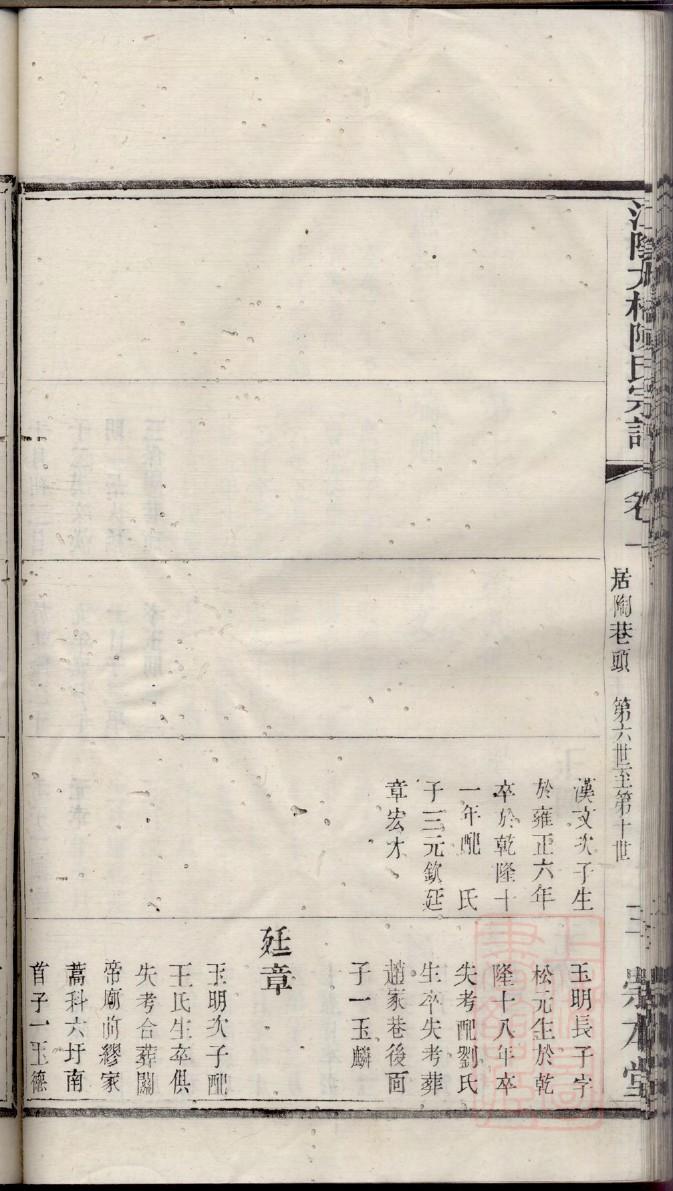 江陰九橋陳氏宗譜
卷一
居陶巷頭 第六世至第十世
三 崇本堂
漢文次子生
於雍正六年
卒於乾隆十
一年配 氏
子三元欽廷
章宏才
玉明長子字
松元生於乾
隆十八年卒
失考配劉氏
生卒失考葬
趙家巷後面
子一玉麟
廷章
玉明次子配
王氏生卒俱
失考合葬關
帝廟前繆家
蒿科六圩南
首子一玉德